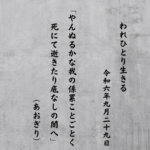 われひとり生きる
令和六年九月二十九日
「やんぬるかな我の係累ことごとく
死にて逝きたり底なしの闇へ」
(あおぎり)